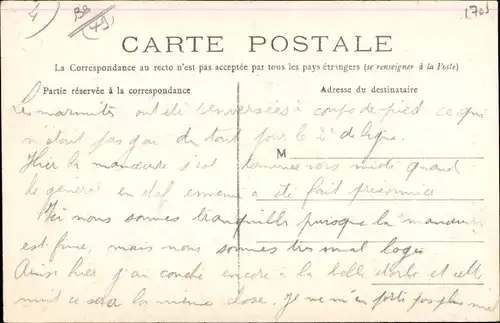 4)
B8
(49)
1.703
CARTE POSTALE
La Correspondance au recto n'est pas acceptée par tous les pays étrangers (se renseigner à la Poste)
Partie réservée à la correspondance
Adresse du destinataire
Les marmites ont été renversées à coups de pied ce qui
n'était pas gai du tout pour le 2e de ligne.
M
Hier la manœuvre s'est terminée vers midi quand
le général en chef ennemi a été fait prisonnier
Ici nous sommes tranquilles puisque la manœuvre
est finie, mais nous sommes très mal logés
Ainsi hier j'ai couché encore à la belle étoile et cette
nuit ce sera la même chose. Je ne m'en porte pas plus mal